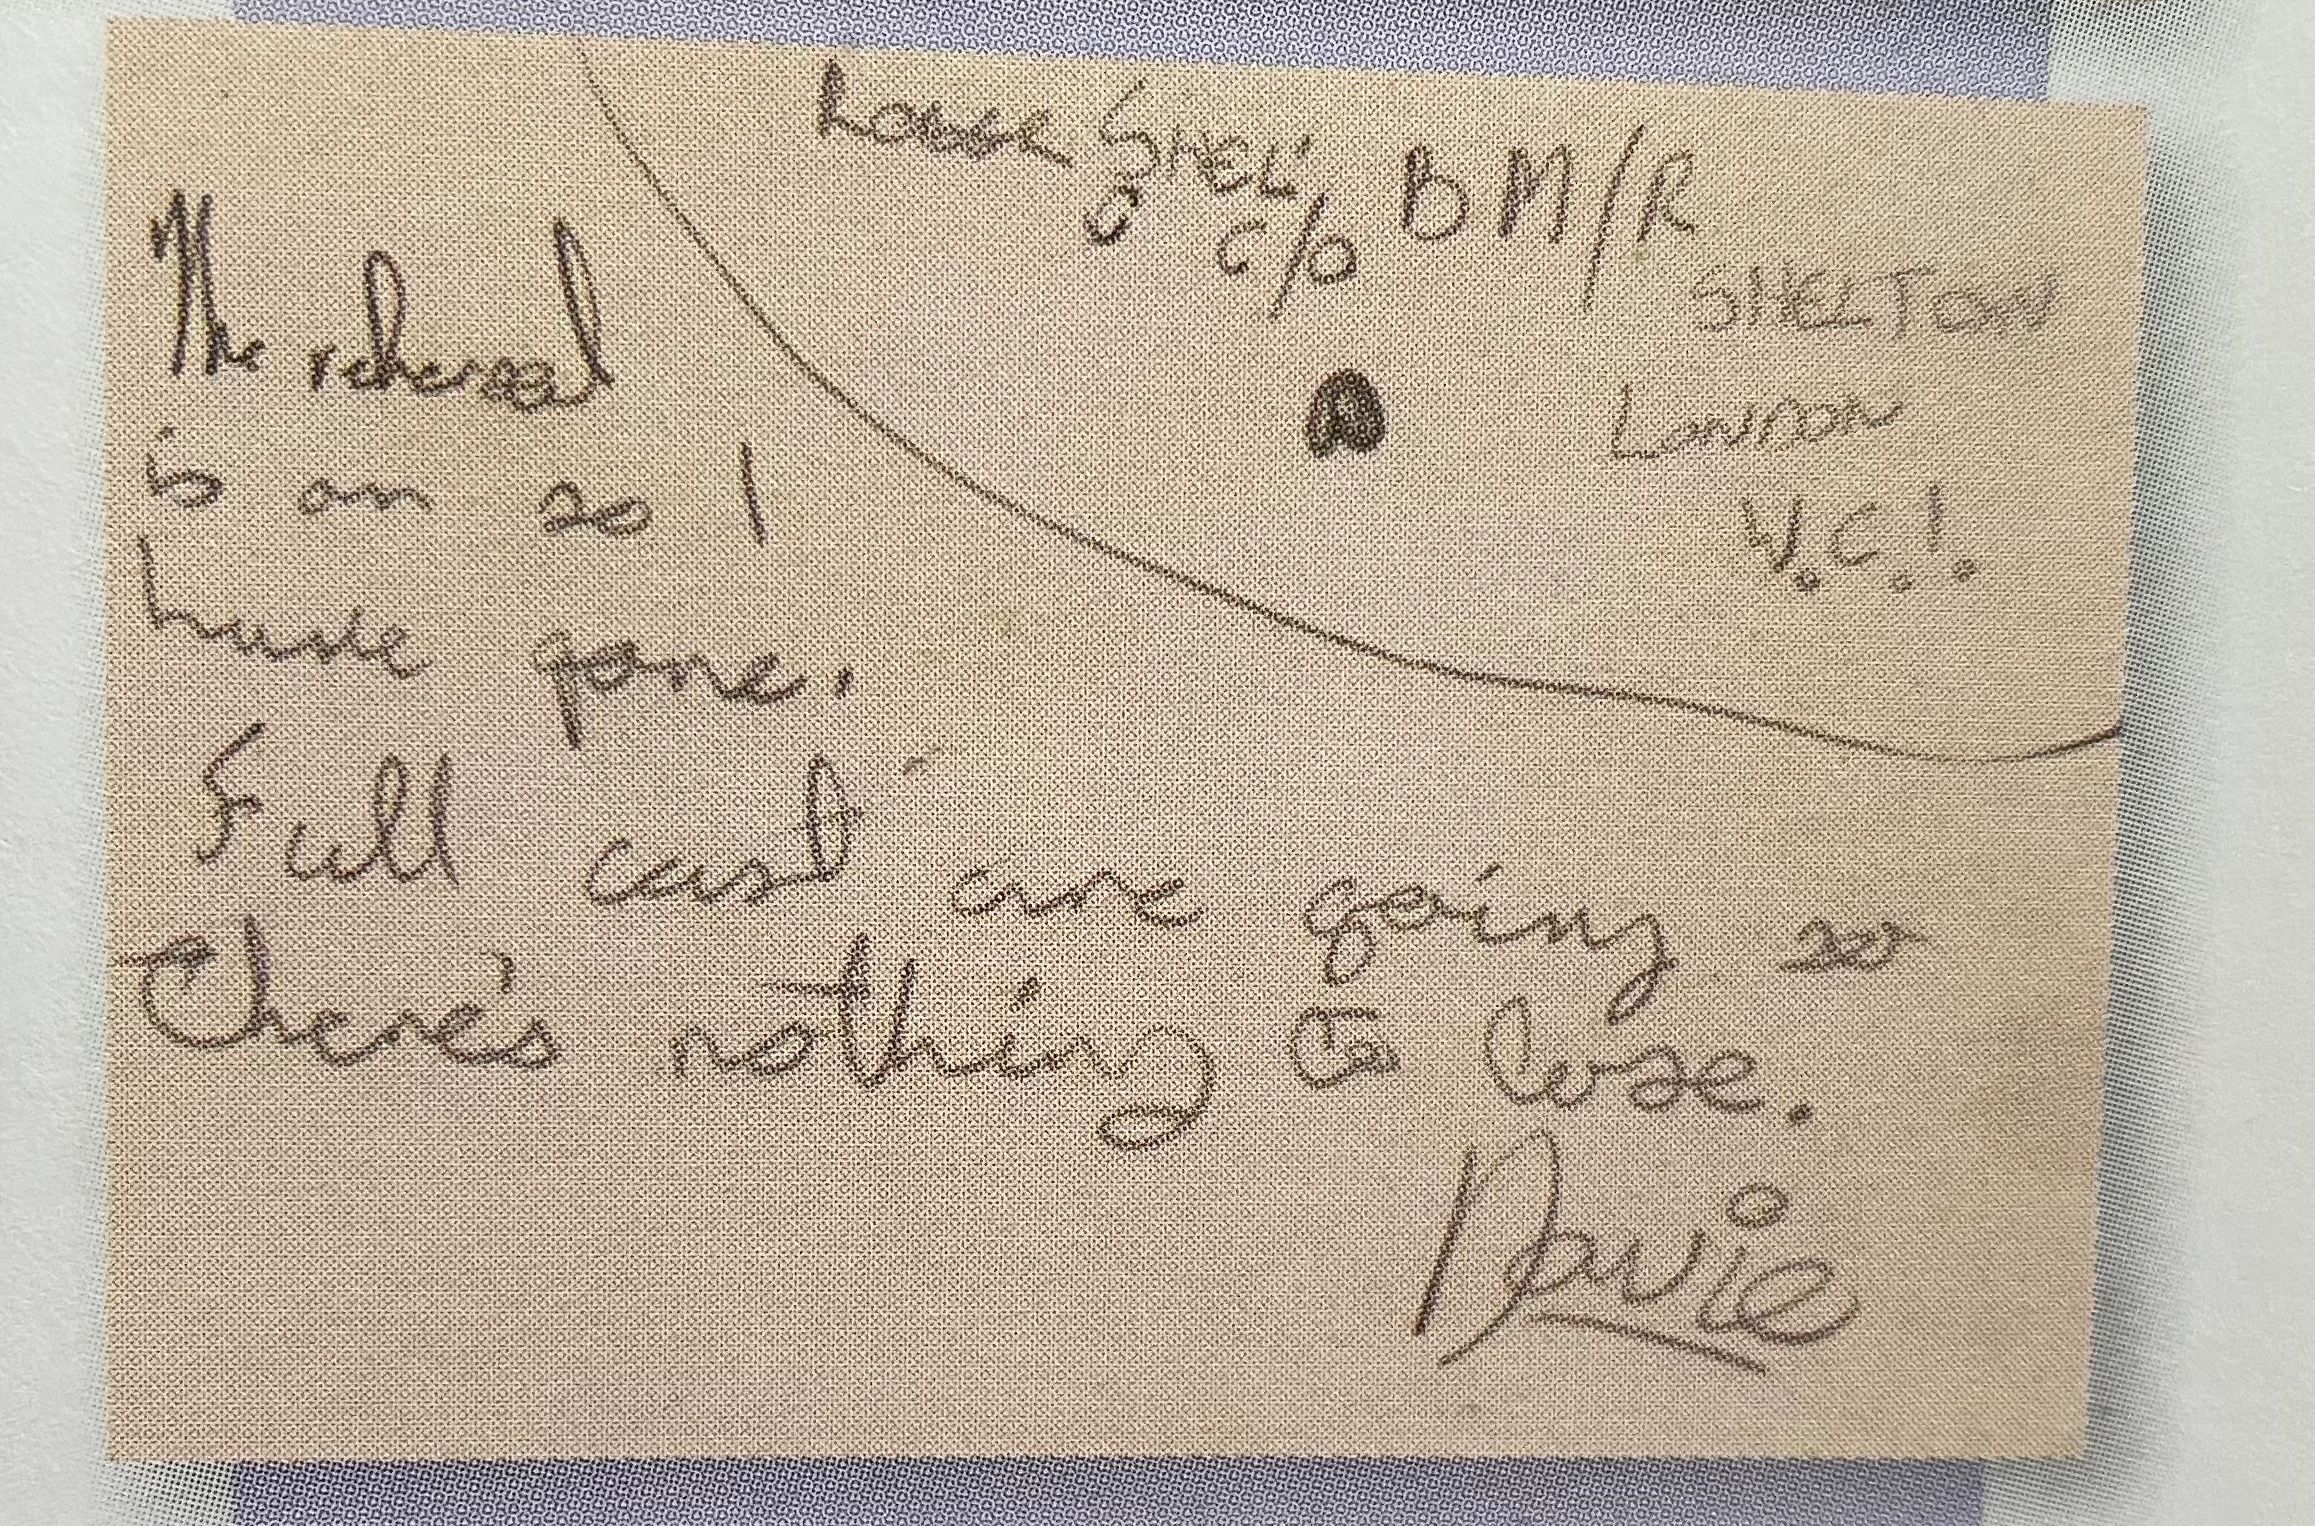 SHEL
c/o BM/R
SHELTON
London
W.C.1.
The rehersal
is on so I
have gone.
Full cast are going so
there's nothing to lose.
Davie